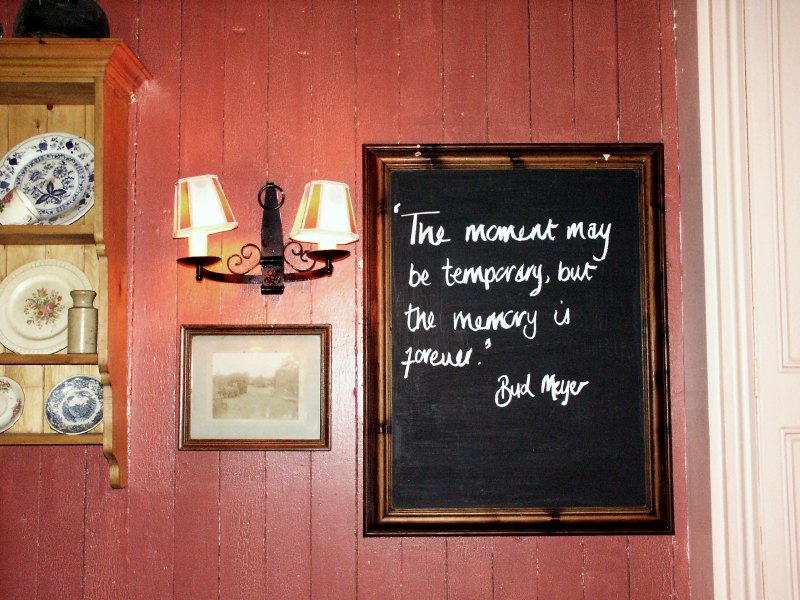 "The moment may
be temporary, but
the memory is
forever."
Bud Meyer